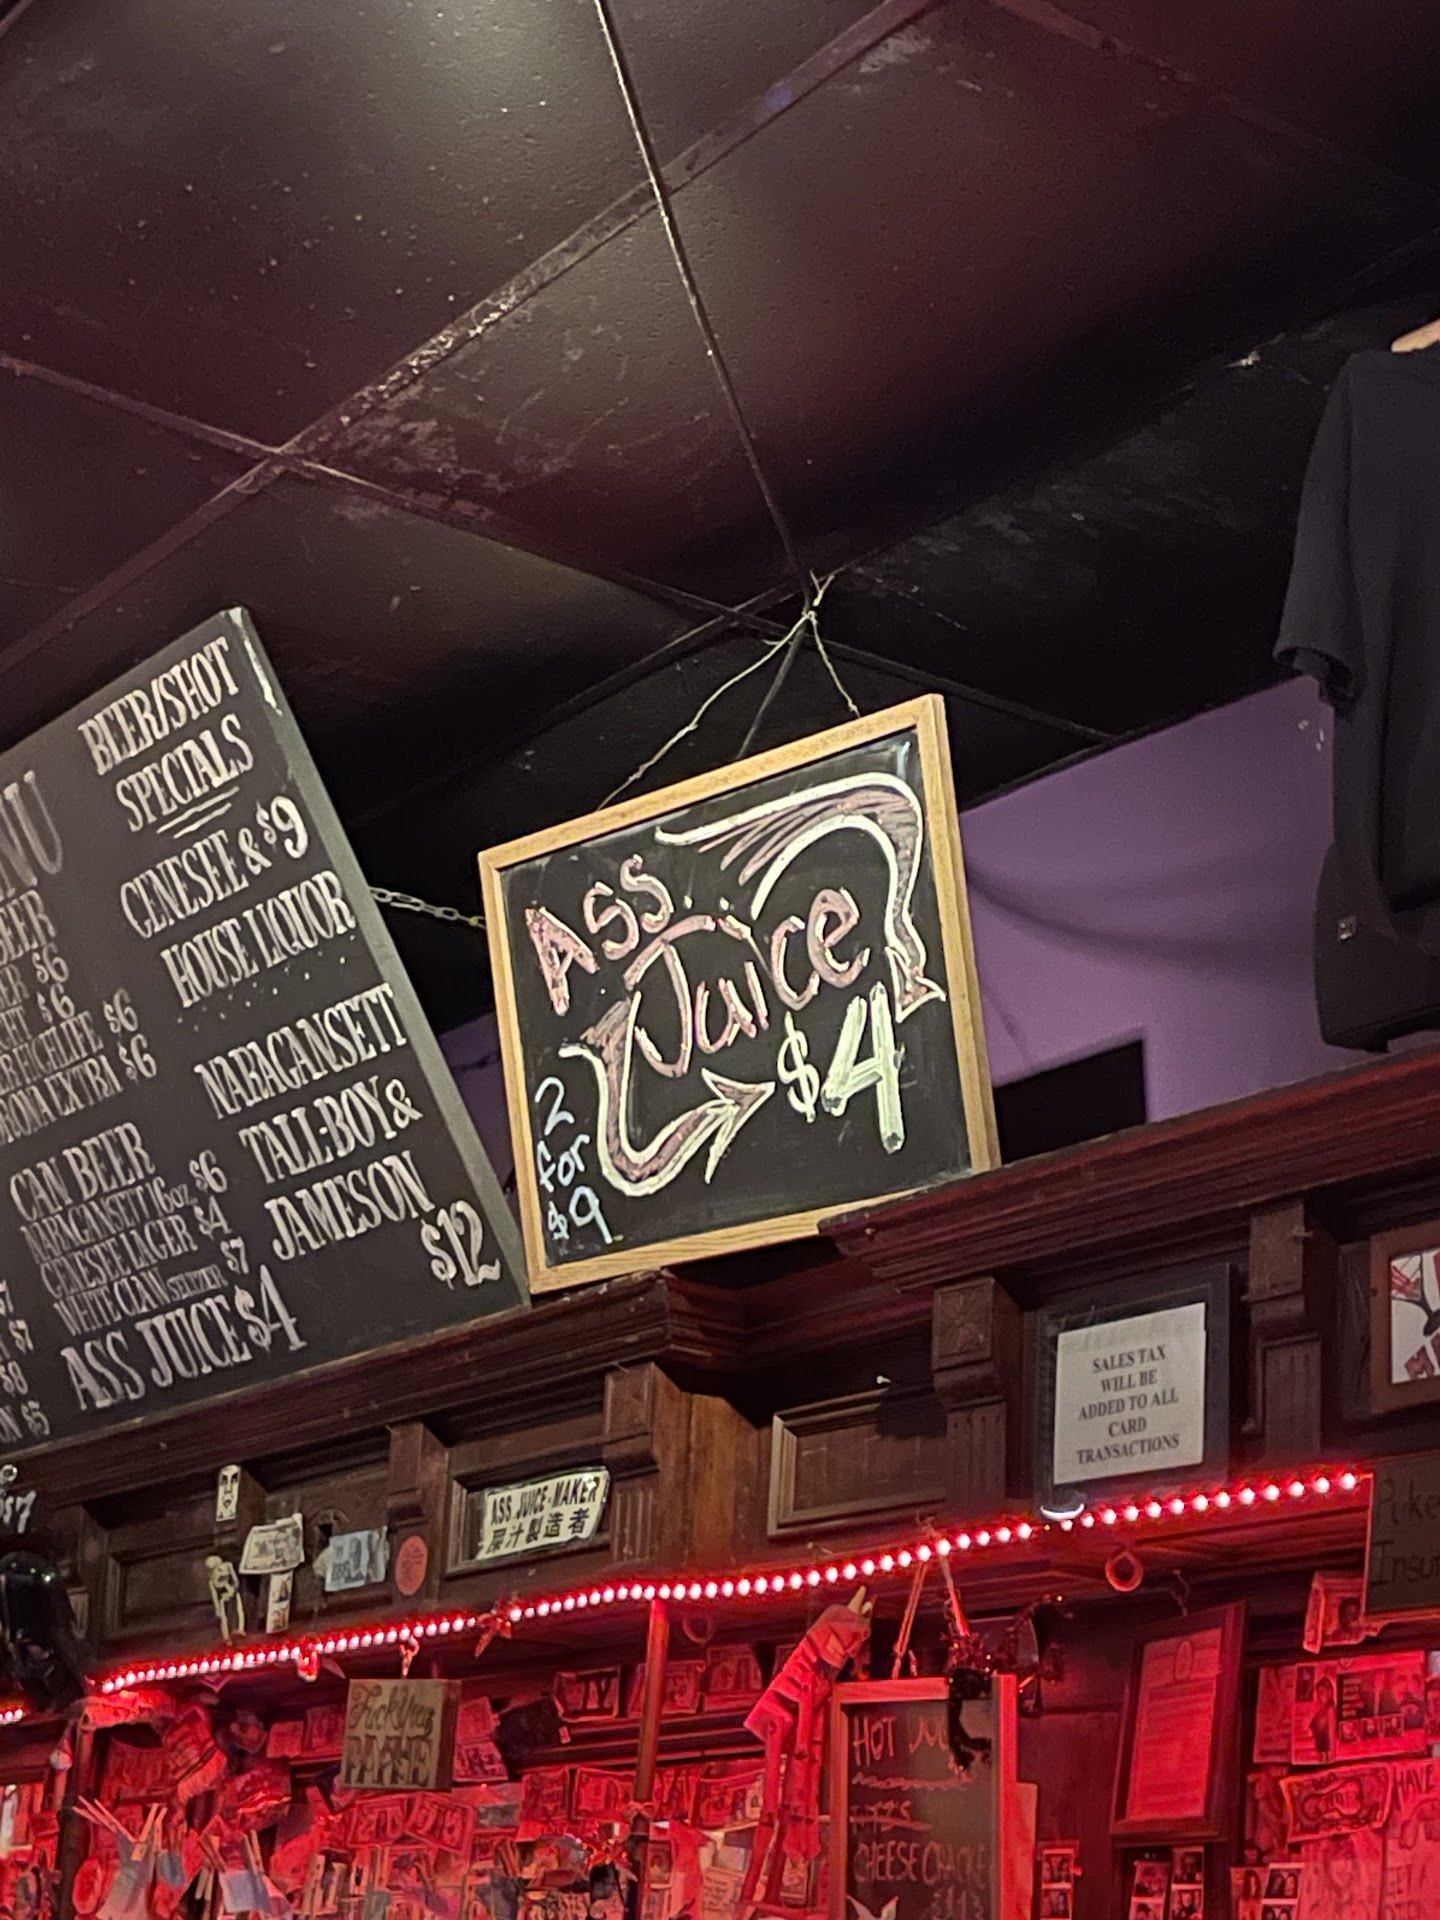 BEER/SHOT
SPECIALS
GENESEE & $9
HOUSE LIQUOR
NARAGANSETT
TALL-BOY &
JAMESON
$12
BEER
$6
$6
HIGHLIFE $6
EXTRA $6
CAN BEER
NARAGANSETT 16oz $6
GENESEE LAGER $4
WHITE CLAW SELTZER $7
ASS JUICE $4
$7
$8
$5
$7
ASS
JUICE
$4
2
for
$9
SALES TAX
WILL BE
ADDED TO ALL
CARD
TRANSACTIONS
ASS JUICE-MAKER!
屎汁製造者
Fuck You
PAY ME!
HOT
CHEESE
HAVE